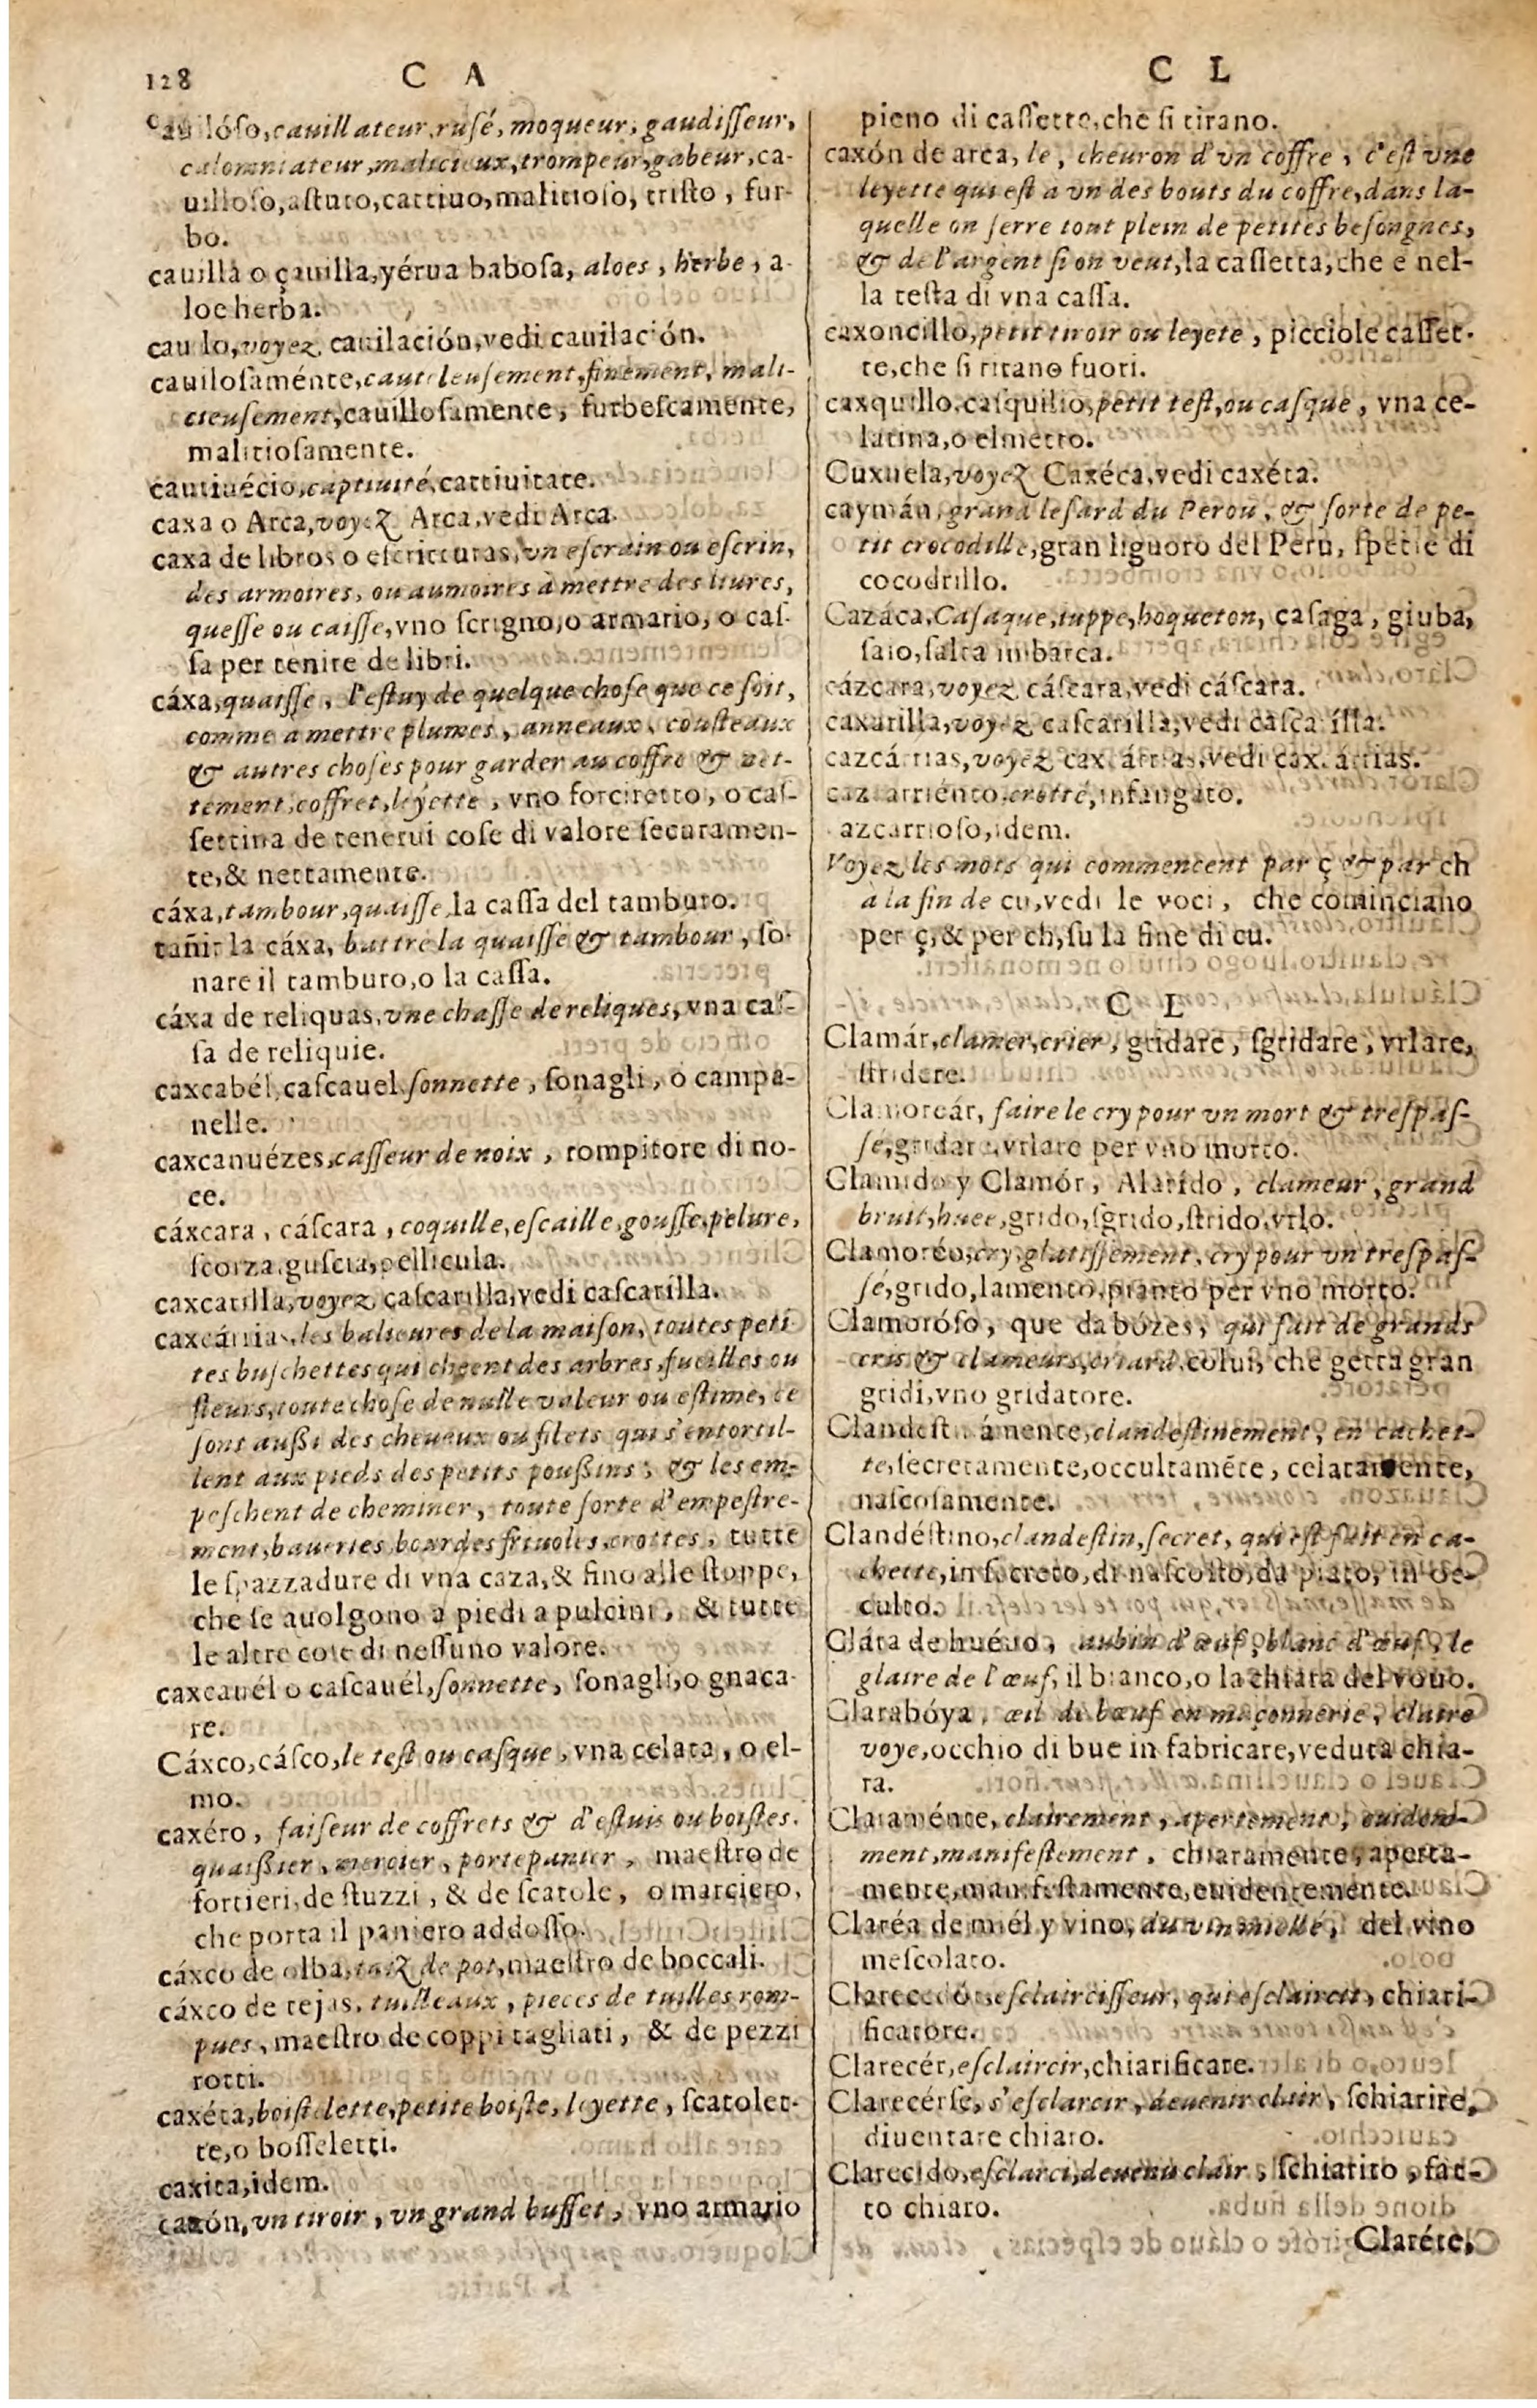 128 C A
C L
cauilóso, cauillateur, rusé, moqueur, gaudisseur,
calomniateur, malicieux, trompeur, gabeur, ca-
uilloso, astuto, cattiuo, malitioso, tristo, fur-
bo.
cauilla o çauilla, yérua babosa, aloes, herbe, a-
loe herba.
voyez cauilación, vedi cauilación.
cauilosaménte, cauteleusement, finement, mali-
cieusement, cauillosamente, furbescamente,
malitiosamente.
cautiuécio, captiuité, cattiuitate.
caxa o Arca, voyez Arca, vedi Arca.
caxa de libros o escritturas, vn escrain ou escrin,
des armoires, ou aumoires à mettre des liures,
quesse ou caisse, vno scrigno, o armario, o cas-
sa per tenire de libri.
cáxa, quaisse, l'estuy de quelque chose que ce soit,
comme a mettre plumes, anneaux, cousteaux
& autres choses pour garder au coffre & net-
tement, coffret, leyette, vno forciretto, o cas-
settina de tenerui cose di valore securamen-
te, & nettamente.
cáxa, tambour, quaisse, la cassa del tamburo.
tañir la cáxa, battre la quaisse & tambour, so-
nare il tamburo, o la cassa.
cáxa de reliquas, vne chasse de reliques, vna cas-
sa de reliquie.
caxcabél, cascauel sonnette, sonagli, o campa-
nelle.
caxcanuézes, casseur de noix, rompitore di no-
ce.
cáxcara, cáscara, coquille, escaille, gousse, pelure,
scorza, guscia, pellicula.
caxcarilla, voyez cascarilla, vedi cascarilla.
caxcárrias, les balieures de la maison, toutes peti
tes buschettes qui cheent des arbres, fueilles ou
fleurs, toute chose de nulle valeur ou estime, ce
sont aussi des cheueux ou filets qui s'entortil-
lent aux pieds des petits poussins, & les em-
peschent de cheminer, toute sorte d'empestre-
ment, baueries, bourdes friuoles, crottes, tutte
le spazzadure di vna caza, & fino alle stoppe,
che se auolgono a piedi a pulcini, & tutte
le altre cose di nessuno valore.
caxcauél o cascauél, sonnette, sonagli, o gnaca-
re.
Cáxco, cásco, le test ou casque, vna celata, o el-
mo.
caxéro, faiseur de coffrets & d'estuis ou boistes.
quaissier, mercier, portepanier, maestro de
fortieri, de stuzzi, & de scatole, o marciero,
che porta il paniero addosso.
cáxco de olba, tatz de pot, maestro de boccali.
cáxco de tejas, tuilleaux, pieces de tuilles rom-
pues, maestro de coppi tagliati, & de pezzi
rotti.
caxéta, boistelette, petite boiste, leyette, scatolet-
te, o bosseletti.
caxita, idem.
caxón, vn tiroir, vn grand buffet, vno armario
pieno di cassette, che si tirano.
caxón de arca, le, cheuron d'vn coffre, c'est vne
leyette qui est a vn des bouts du coffre, dans la-
quelle on serre tout plein de petites besongnes,
& de l'argent si on veut, la cassetta, che è nel-
la testa di vna cassa.
caxoncillo, petit tiroir ou leyete, picciole casset-
te, che si tirano fuori.
caxquillo, casquilio, petit test, ou casque, vna ce-
latina, o elmetto.
Cuxuela, voyez Caxéca, vedi caxéta.
caymán, grand lesard du Perou, & sorte de pe-
tit crocodille, gran liguoro del Perù, spetie di
cocodrillo.
Cazáca, Casaque, iuppe, hoqueton, casaga, giuba,
saio, salta imbarca.
cázcara, voyez cáscara, vedi cáscara.
caxarilla, voyez cascarilla, vedi casca illa.
cazcárrias, voyez cax. árrias, vedi cax. árrias.
caz arriénto, crotté, infangato.
azcarrioso, idem.
Voyez les mots qui commencent par ç & par ch
à la fin de cu, vedi le voci, che cominciano
per ç, & per ch, su la fine di cu.
C L
Clamár, clamer, crier, gridare, sgridare, vrlare,
stridere.
Clamoreár, faire le cry pour vn mort & trespas-
sé, gridare, vrlare per vno morto.
Clamido y Clamór, Alarído, clameur, grand
bruit, huee, grido, sgrido, strido, vrlo.
Clamoréo, cry, glatissement, cry pour vn trespas-
sé, grido, lamento, pianto per vno morto.
Clamoróso, que da bózes, qui fait de grands
cris & clameurs, criard, colui, che getta gran
gridi, vno gridatore.
Clandest  aménte, clandestinement, en cachet-
te, secretamente, occultamẽte, celatamente,
nascosamente.
Clandéstino, clandestin, secret, qui est fait en ca-
chette, in secreto, di nascosto, da piato, in oc-
culto.
Clára de huéuo, aubin d'œuf, blanc d'œuf, le
glaire de l'œuf, il bianco, o la chiara del vouo.
Clarabóya, œil de bœuf en maçonnerie, claire
voye, occhio di bue in fabricare, veduta chia-
ra.
Claraménte, clairement, apertement, euidem-
ment, manifestement, chiaramente, aperta-
mente, manifestamente, euidentemente.
Claréa de miél y vino, du vin miellé, del vino
mescolato.
Clarecedór, esclaircisseur, qui esclaircit, chiari-
ficatore.
Clarecér, esclaircir, chiarificare.
Clarecérse, s'esclarcir, deuenir clair, schiarire,
diuentare chiaro.
Clarecido, esclarci, deuenu clair, schiarito, fat-
to chiaro.
Claréte,